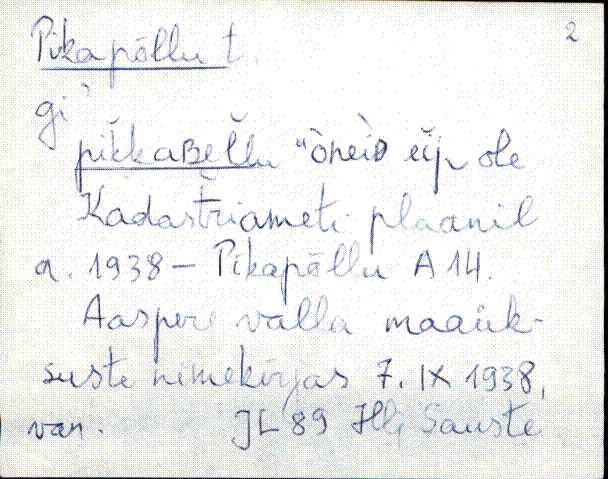 2
Pikapõllu t.
gi
pikkaʙeĺĺu
ole
Kadastriameti plaanil
a. 1938 – Pikapõllu A 14.
Aaspere valla maaük-
suste nimekirjas 7. IX 1938,
van. JL 89